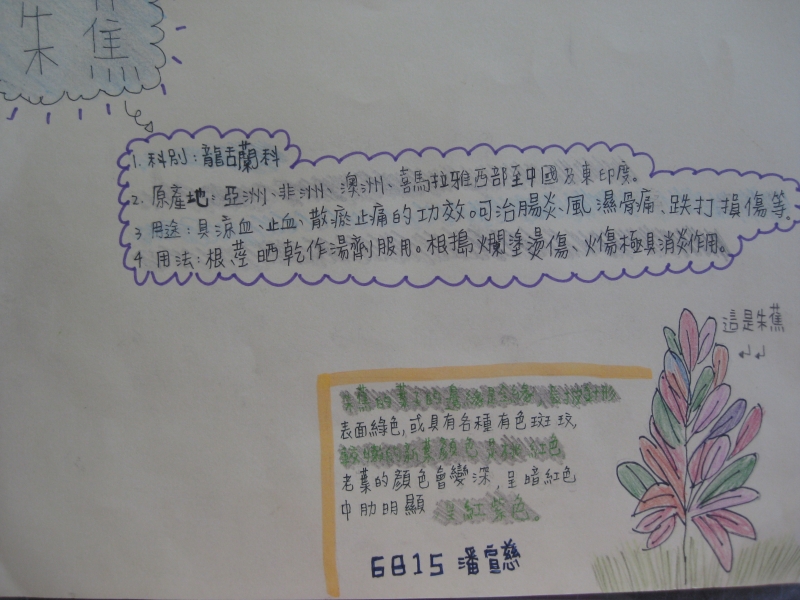 朱蕉
1. 科別:龍舌蘭科
2. 原產地:亞洲、非洲、澳洲、喜馬拉雅西部至中國及東印度。
3 用途:具涼血、止血、散瘀止痛的功效。可治腸炎、風濕骨痛、跌打損傷等.
4 用法:根莖晒乾作湯劑服用。根搗爛塗燙傷、火傷極具消炎作用。
這是朱蕉
朱蕉的葉
表面綠色,或具有各種有色斑玟,
較嫩的新葉顏色呈桃紅色
老葉的顏色會變深,呈暗紅色
中肋明顯 呈紅紫色。
6815 潘宣慈